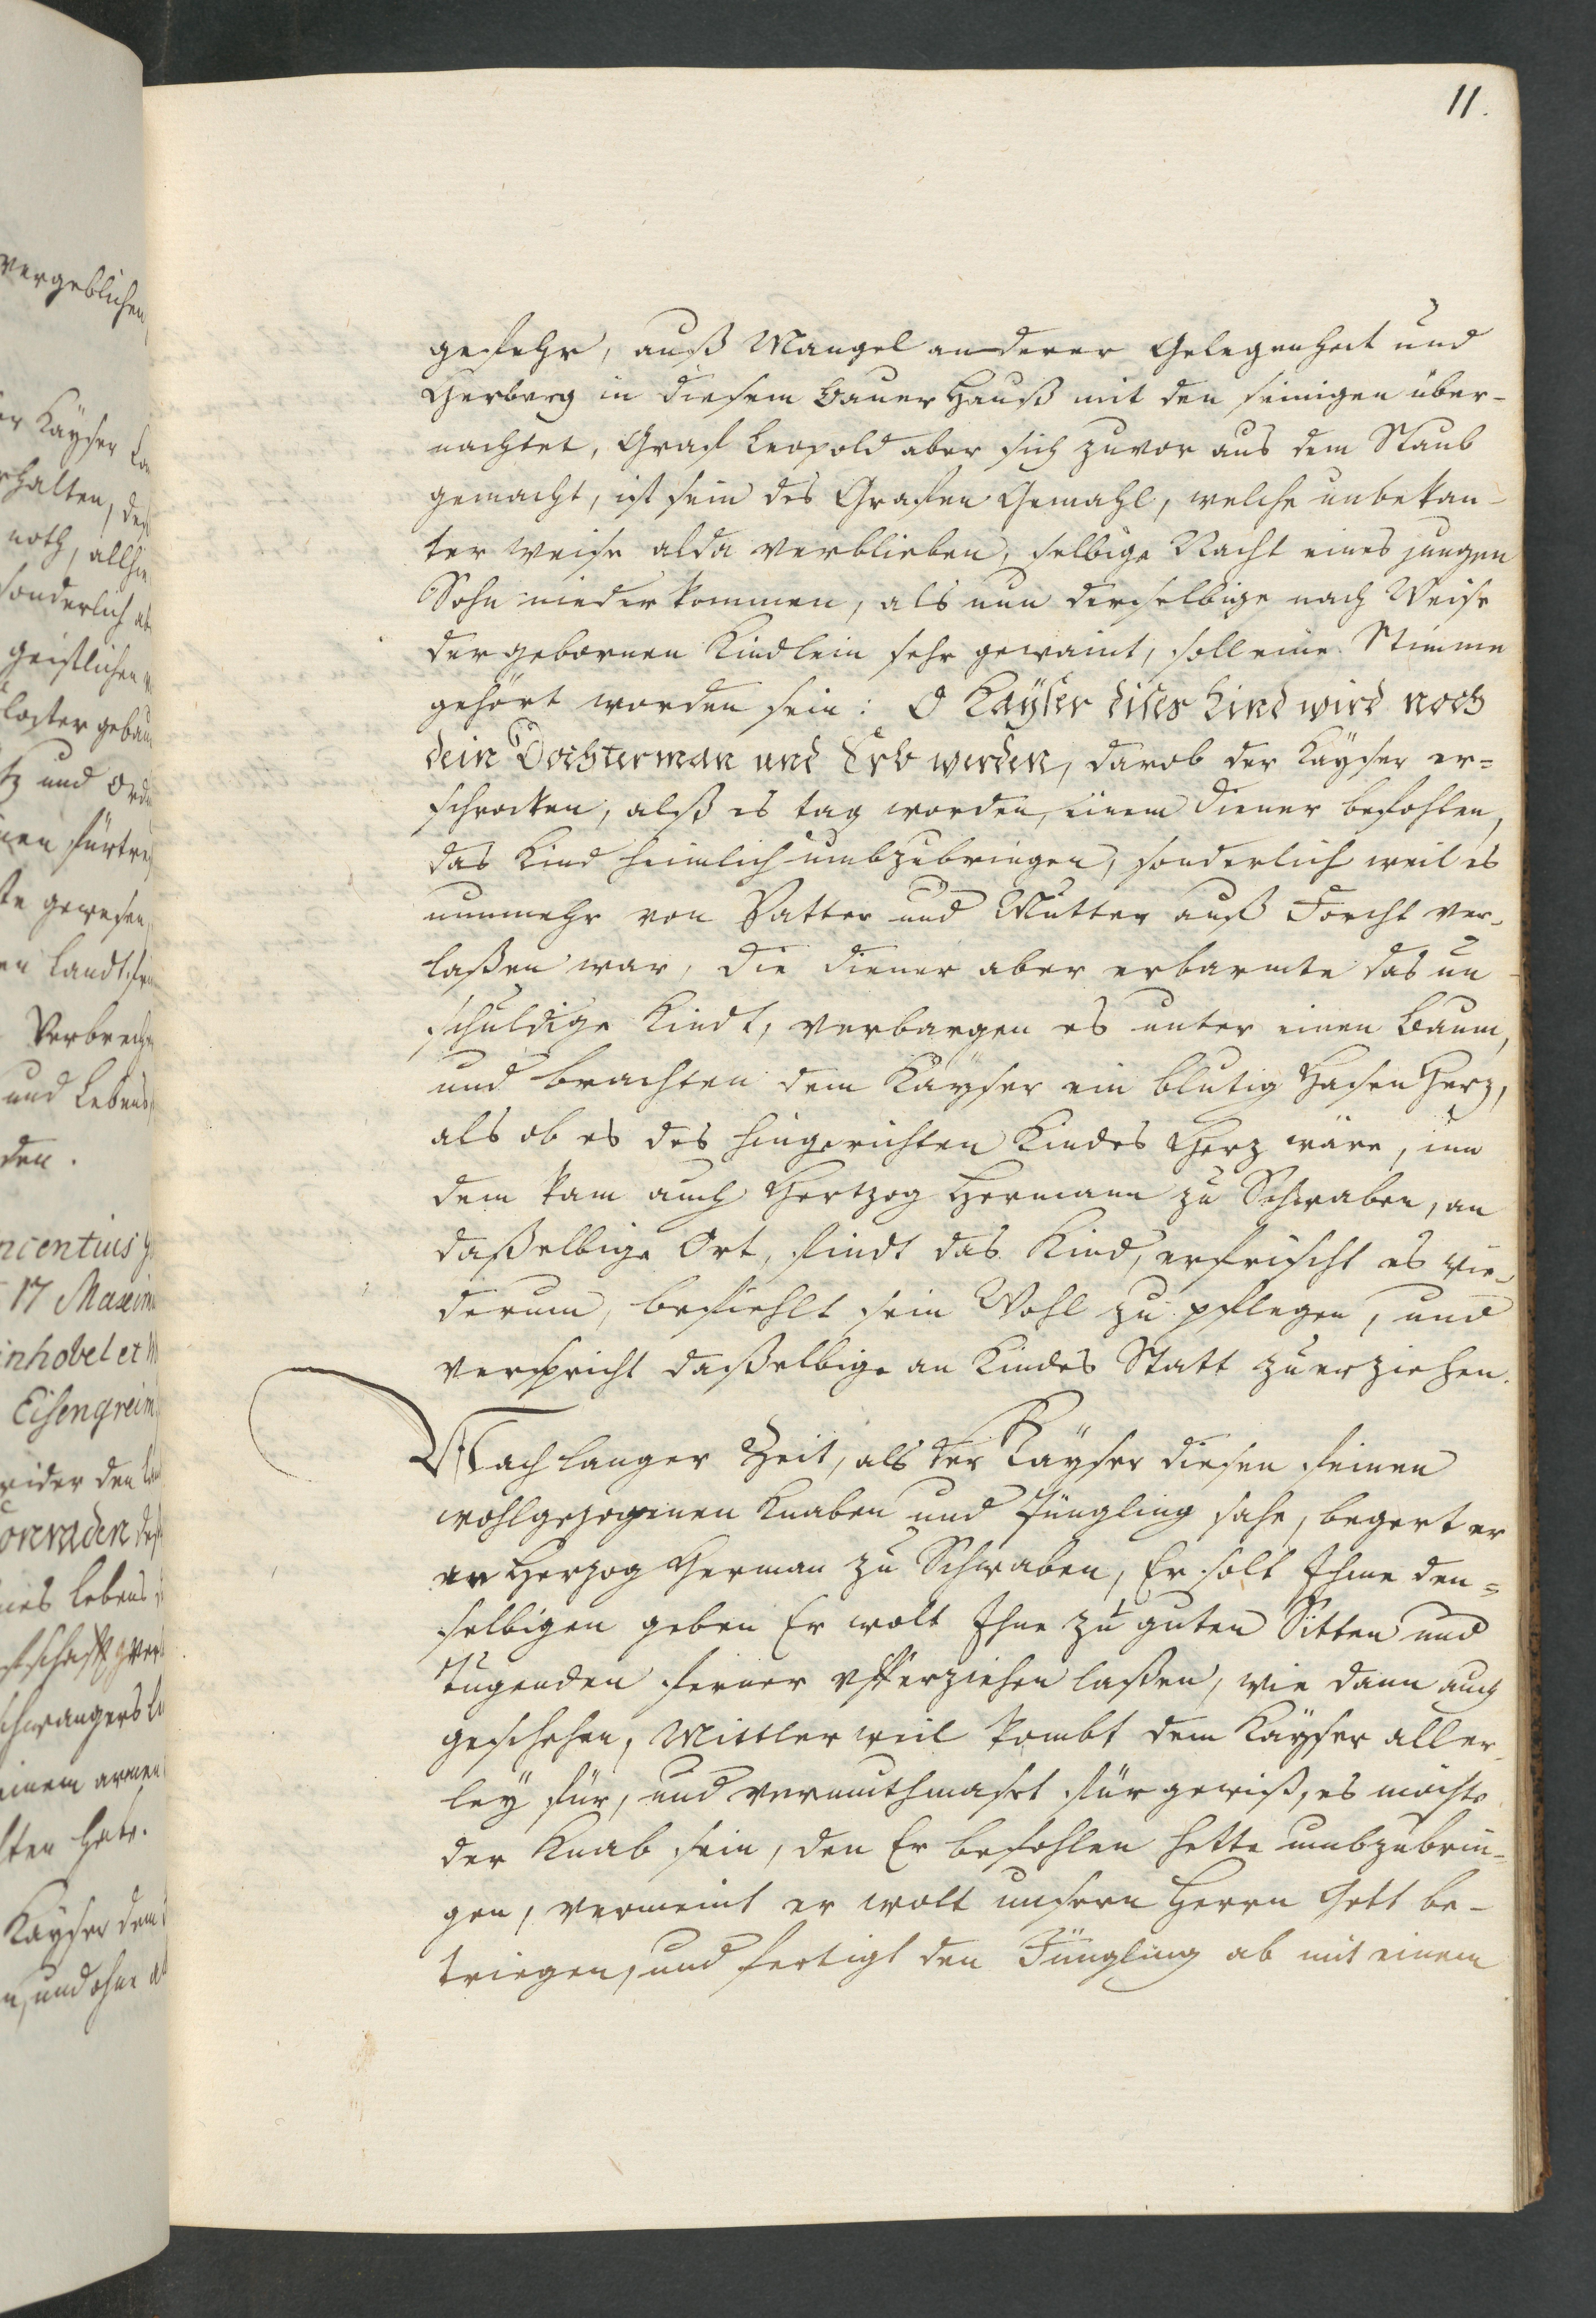 11.
gefehr, auß Mangel anderer Gelegenheit und
Herberg in diesem Bauer Hauß mit den seinigen über-
nachtet, Graf Leopold aber sich zuvor aus dem Staub
gemacht, ist sein des Grafen Gemahl, welche unbekan-
ter weise alda verblieben, selbige Nacht eines jungen
Sohn niederkommen, als nun derselbige nach Weise
der gebornen Kindlein sehr gewaint, soll eine Stimme
gehört worden sein: O Kayser dises Kind wird noch
dein Dochterman und Erb werden, darob der Kayser er=
schrocken, alß es tag worden, einem Diener befohlen,
das Kind heimlich umbzubringen, sonderlich weil es
nunmehr von Vatter und Mutter auß Forcht ver-
laßen war, die diener aber erbarmte das un-
schuldige Kindt, verbargen es unter einen Baum,
und brachten dem Kayser ein blutig Hasen Herz,
als ob es des hingerichten Kindes Herz wäre, inn
dem kam auch Hertzog Hermann zu Schwaben, an
daßelbige Ort, findt das Kind, erfrischt es wie-
derum, befiehlt sein Wohl zu pflegen, und
verspricht daßelbige an Kindes Statt zu erziehen.
Nach langer Zeit, als der Kayser diesen seinen
wohlgezogenen Knaben und Jüngling sahe, begert er
an Herzog Herman zu Schwaben, Er solt Ihme den=
selbigen geben Er wolt Ihne zu guten Sitten und
Tugenden ferner vfferziehen laßen, wie dann auch
geschehen, Mittlerweil kombt dem Kayser aller
ley für, und vermuthmaset für gewiß, es möchte
der Knab sein, den Er befohlen hette umbzubrin-
gen, vermeint er wolt unsern Herrn Gott be-
triegen, und fertigt den Jüngling ab mit einem
vergeblichen
noth,
sonderlich
geistlichen
und
gewesen
und Lebens
17
inhobel et
Eisengrein
einem armen
Kayser dem